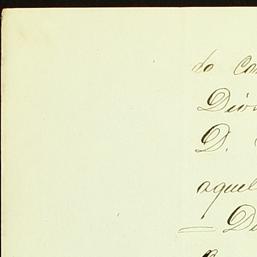 do Con
Divi
D.
aquel
— De